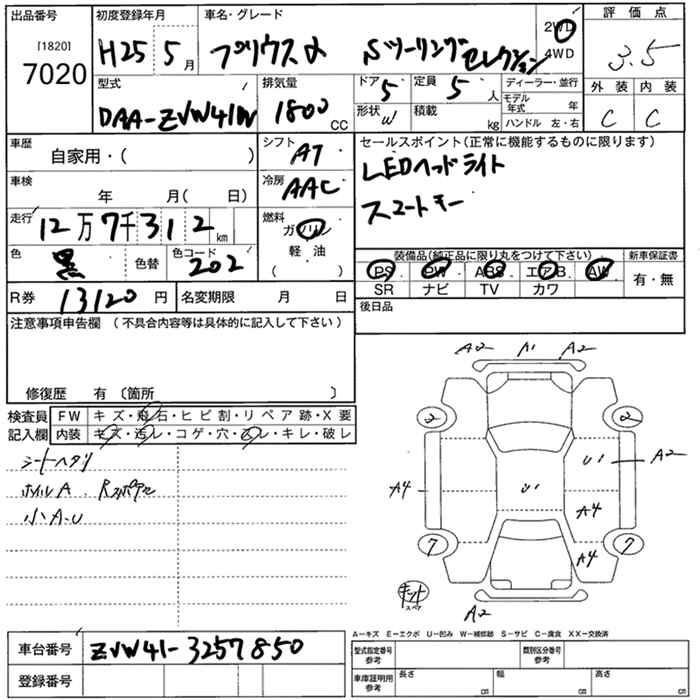 出品番号 [1820] 7020
初度登録年月 H25 5月
車名・グレード プリウスα Sツーリングセレクション
2WD
4WD
評価点 3.5
外装 C 内装 C
型式 DAA-ZVW41W
排気量 1800 CC
ドア 5 定員 5 人
形状 W 積載 kg
ディーラー・並行
モデル年式 年
ハンドル 左・右
車歴 自家用・( )
シフト AT
車検 年 月( 日)
冷房 AAC
走行 12万7千312km
燃料 ガソリン
軽油
( )
色 黒 色替 色コード 202
R券 13120円 名変期限 月 日
セールスポイント(正常に機能するものに限ります)
LEDヘッドライト
スマートキー
装備品(純正品に限り丸をつけて下さい) 新車保証書
PS PW ABS エアB AW 有・無
SR ナビ TV カワ
後日品
注意事項申告欄 (不具合内容等は具体的に記入して下さい)
修復歴 有 〔箇所 〕
検査員 FW キズ・飛石・ヒビ割・リペア跡・X要
記入欄 内装 キズ・汚レ・コゲ・穴・スレ・キレ・破レ
シートヘタリ
ホイルA
小A.U
A2 A1 A2
2 2
U1 A2
A4 U1 A4
7 A4 7
キット
スペア
A2
A-キズ E-エクボ U-凹み W-補修跡 S-サビ C-腐食 XX-交換済
車台番号 ZVW41-3257850
登録番号
型式指定番号 参考 類別区分番号 参考
車庫証明用 参考 長さ cm 幅 cm 高さ cm